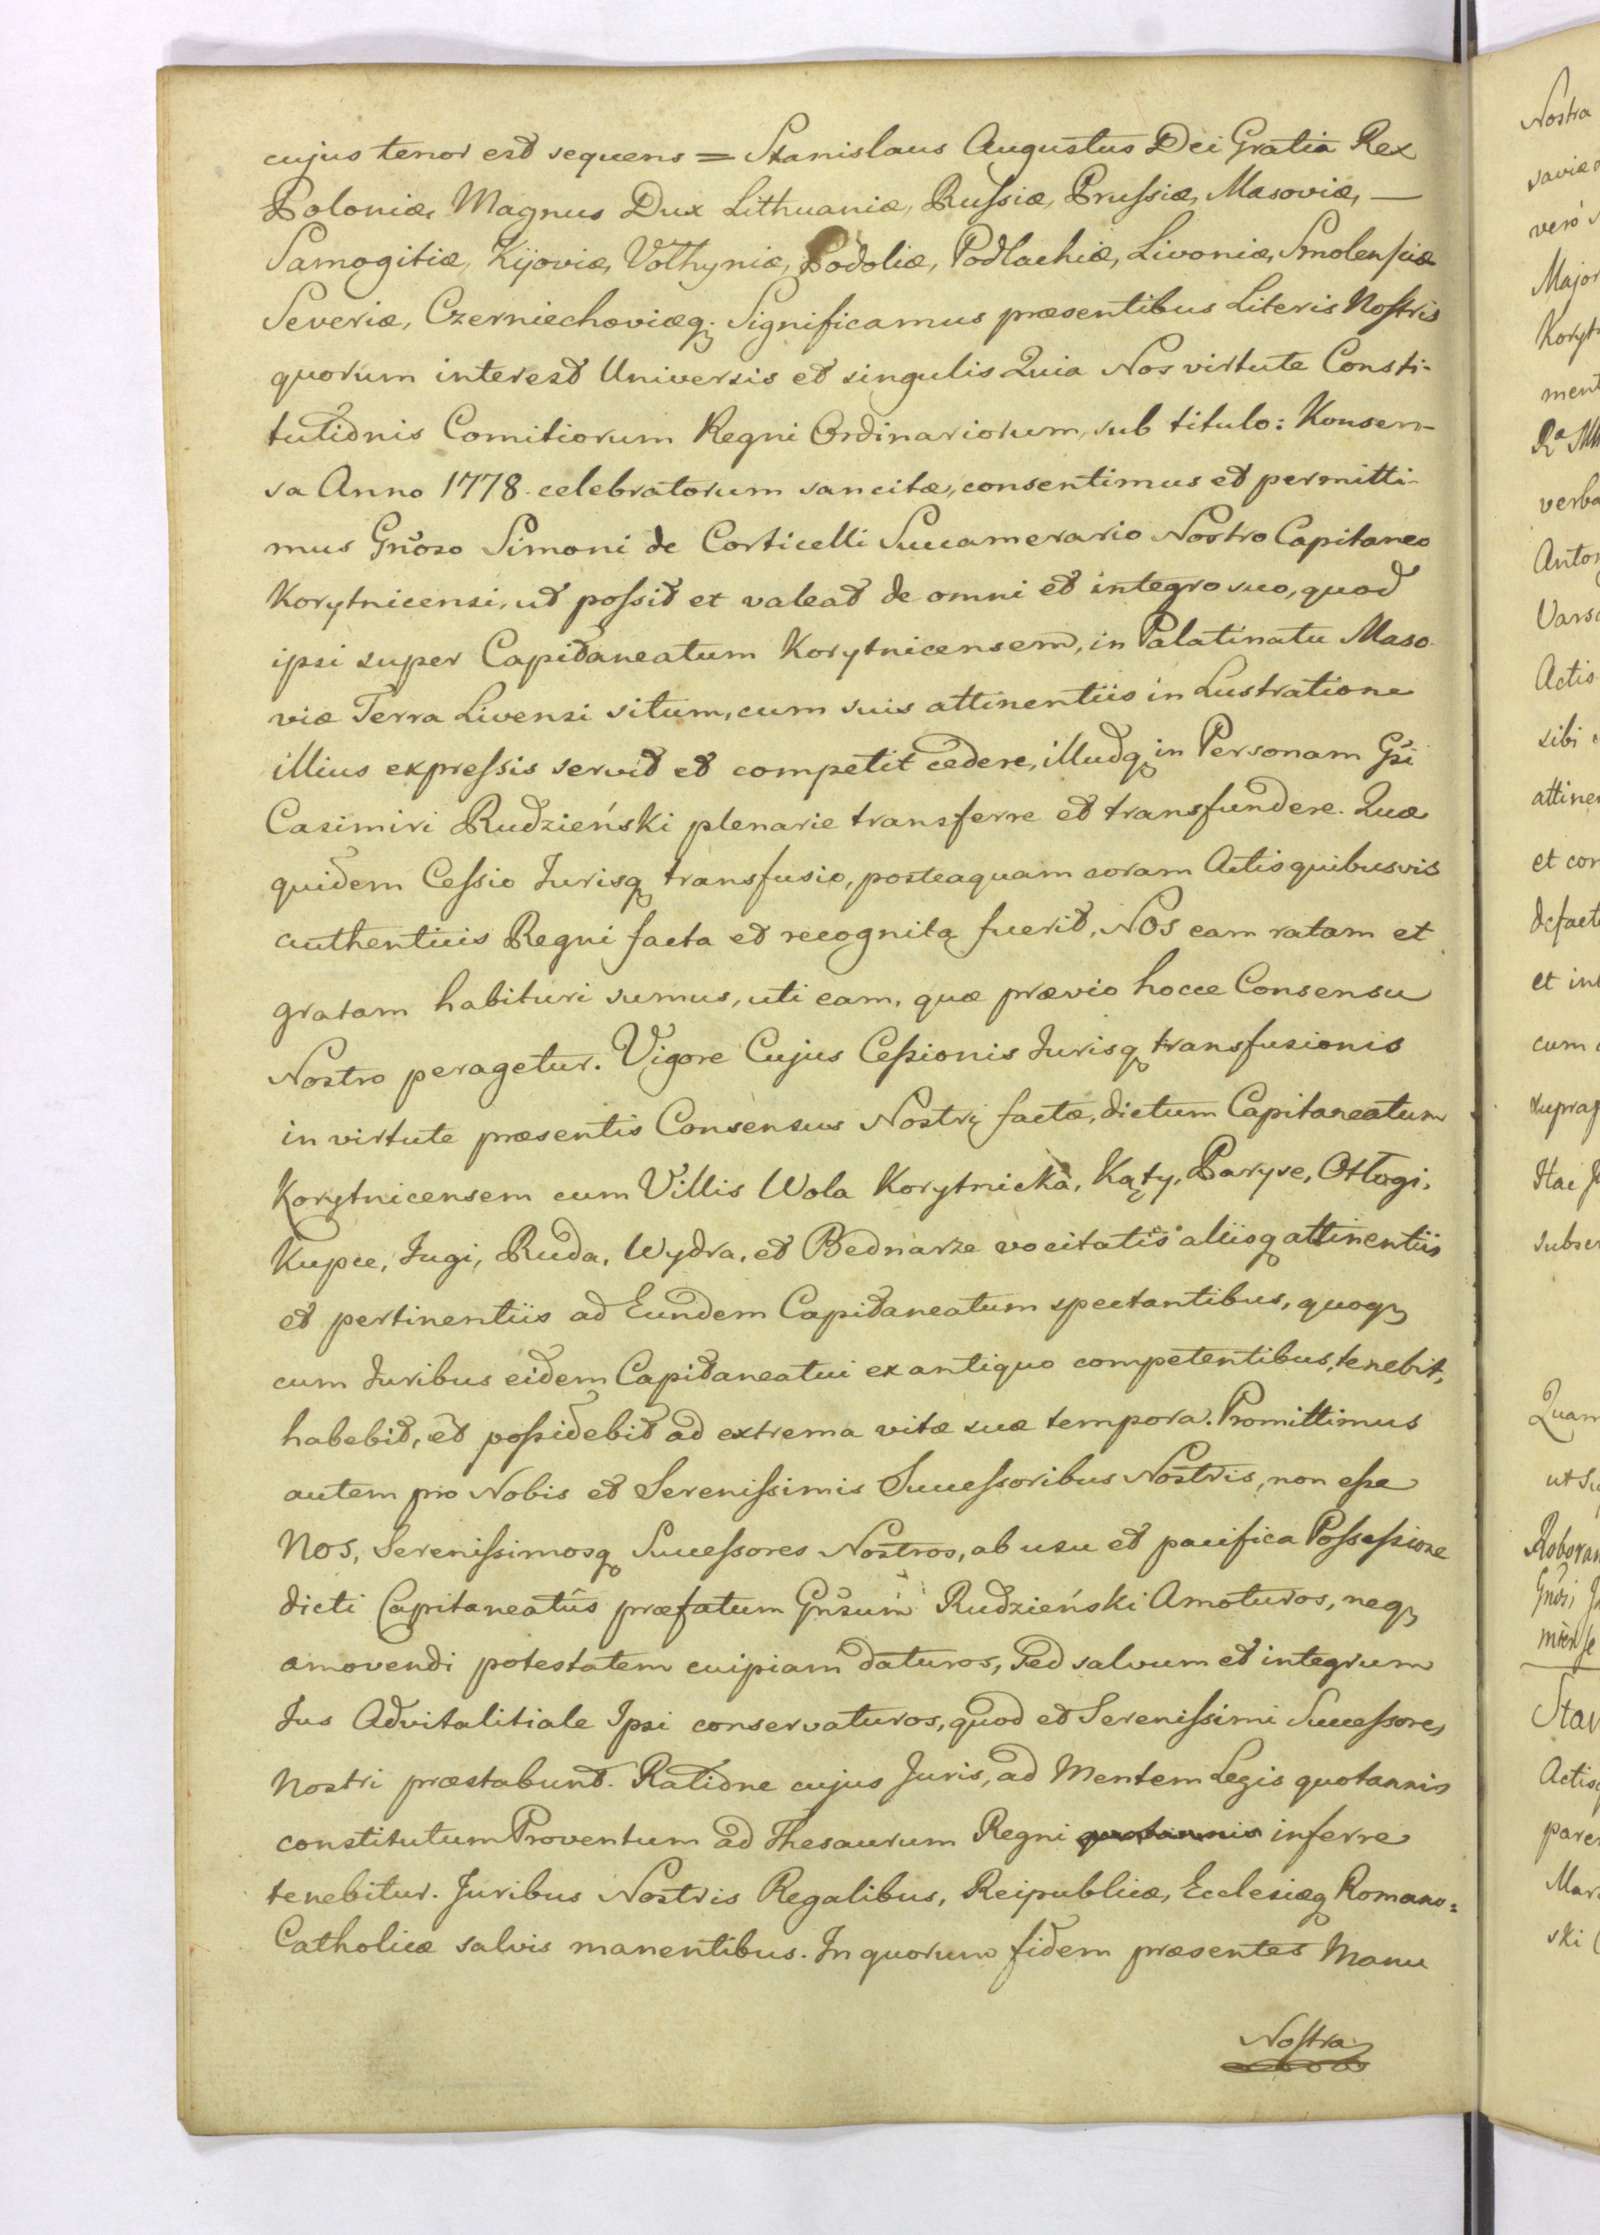 cujus tenor est sequens = Stanislaus Augustus Dei Gratia Rex
Poloniæ, Magnus Dux Lithuaniæ, Russiæ, Prussiæ, Masoviæ, —
Samogitiæ, Kijoviæ, Volhyniæ, Podoliæ, Podlachiæ, Livoniæ, Smolensciæ
Severiæ, Czerniechoviæq; Significamus præsentibus Literis Nostris
quorum interest Universis et singulis Quia Nos virtute Consti-
tutiõnis Comitiorum Regni Ordinariorum, sub titulo: Konsen-
sa Anno 1778. celebratorum sancitæ, consentimus et permitti-
mus Gñoso Simoni de Corticelli Succamerario Nostro Capitaneo
Korytnicensi, ut possit et valeat de omni et integro suo, quod
ipsi super Capitaneatum Korytnicensem, in Palatinatu Maso-
viæ Terra Livensi situm, cum suis attinentiis in Lustratione
illius expressis servit et competit cedere, illudq in Personam Gsi
Casimiri Rudzieński plenarie transferre et transfundere. Quæ
quidem Cessio Jurisq transfusio, posteaquam coram Actis quibusvis
authenticis Regni facta et recognita fuerit, NOS eam ratam et
gratam habituri sumus, uti eam, quæ prævio hocce Consensu
Nostro peragetur. Vigore Cujus Cessionis Jurisq transfusionis
in virtute præsentis Consensus Nostri factæ, dictum Capitaneatum
Korytnicensem cum Villis Wola Korytnicka, Kąty, Paryse, Ottogi,
Kupce, Jugi, Ruda, Wydra, et Bednarze vocitatis aliisq attinentiis
et pertinentiis ad Eundem Capitaneatum spectantibus, quoq;
cum Juribus eidem Capitaneatui ex antiquo competentibus, tenebit,
habebit, et possidebit ad extrema vitæ suæ tempora. Promittimus
autem pro Nobis et Serenissimis Successoribus Nostris, non esse
NOS, Serenissimosq Successores Nostros, ab usu et pacifica Possessione
dicti Capitaneatûs præfatum Gñsum Rudzieński Amoturos, neq;
amovendi potestatem cuipiam daturos, Sed salvum et integrum
Jus Advitalitiale Ipsi conservaturos, quod et Serenissimi Successores
Nostri præstabunt. Ratiõne cujus Juris, ad Mentem Legis quotannis
constitutum Proventum ad Thesaurum Regni quotannis inferre
tenebitur. Juribus Nostris Regalibus, Reipublicæ, Ecclesiæq Romano=
Catholicæ salvis manentibus. In quorum fidem præsentes Manu
Nostra
Nostra
saviæ
vero
Major
Koryt
ment
verba
Anton
Vars
Actis
sibi
attine
et con
defact
et int
cum
suprap
Hac
subser
Quam
ut
Roboran
Gñsi
Stan
Actis
parer
Mar
ski